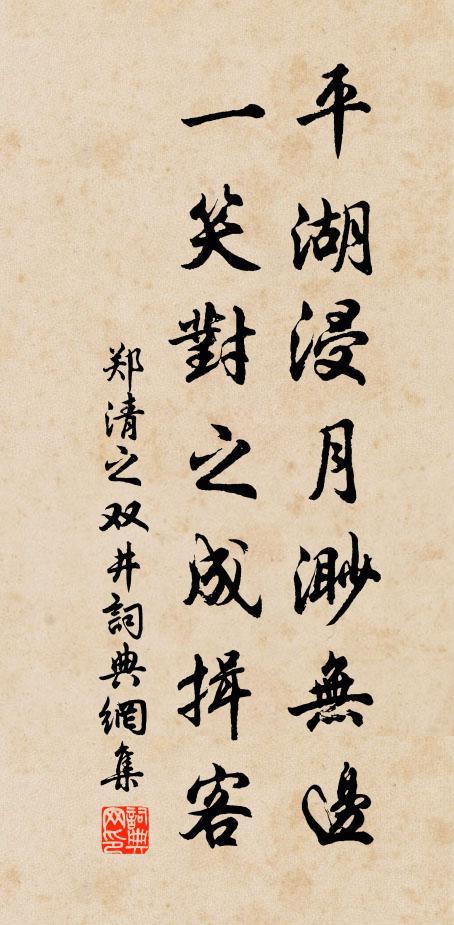 平湖浸月渺無邊
一笑對之成揖客
郑清之双井詞典網集
詞典网印